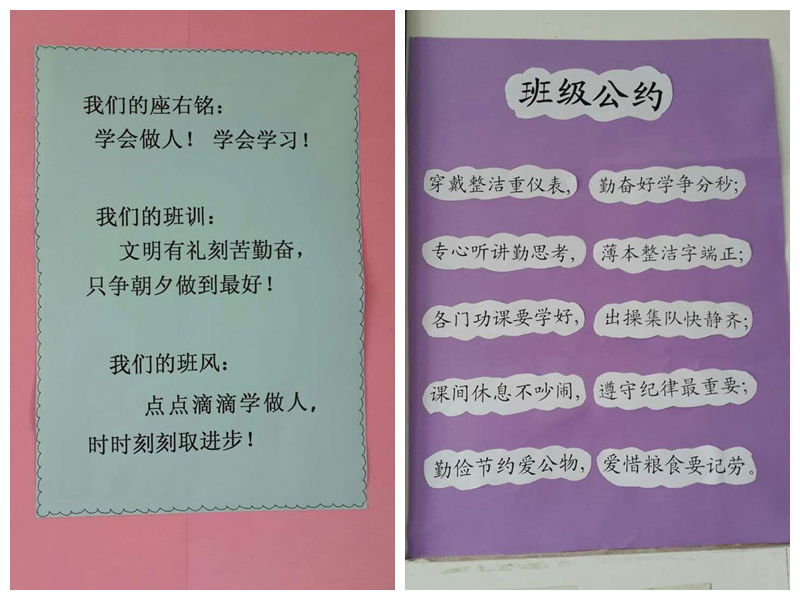 我们的座右铭：
学会做人！ 学会学习！
我们的班训：
文明有礼刻苦勤奋，
只争朝夕做到最好！
我们的班风：
点点滴滴学做人，
时时刻刻取进步！
班级公约
穿戴整洁重仪表， 勤奋好学争分秒；
专心听讲勤思考， 薄本整洁字端正；
各门功课要学好， 出操集队快静齐；
课间休息不吵闹， 遵守纪律最重要；
勤俭节约爱公物， 爱惜粮食要记劳。